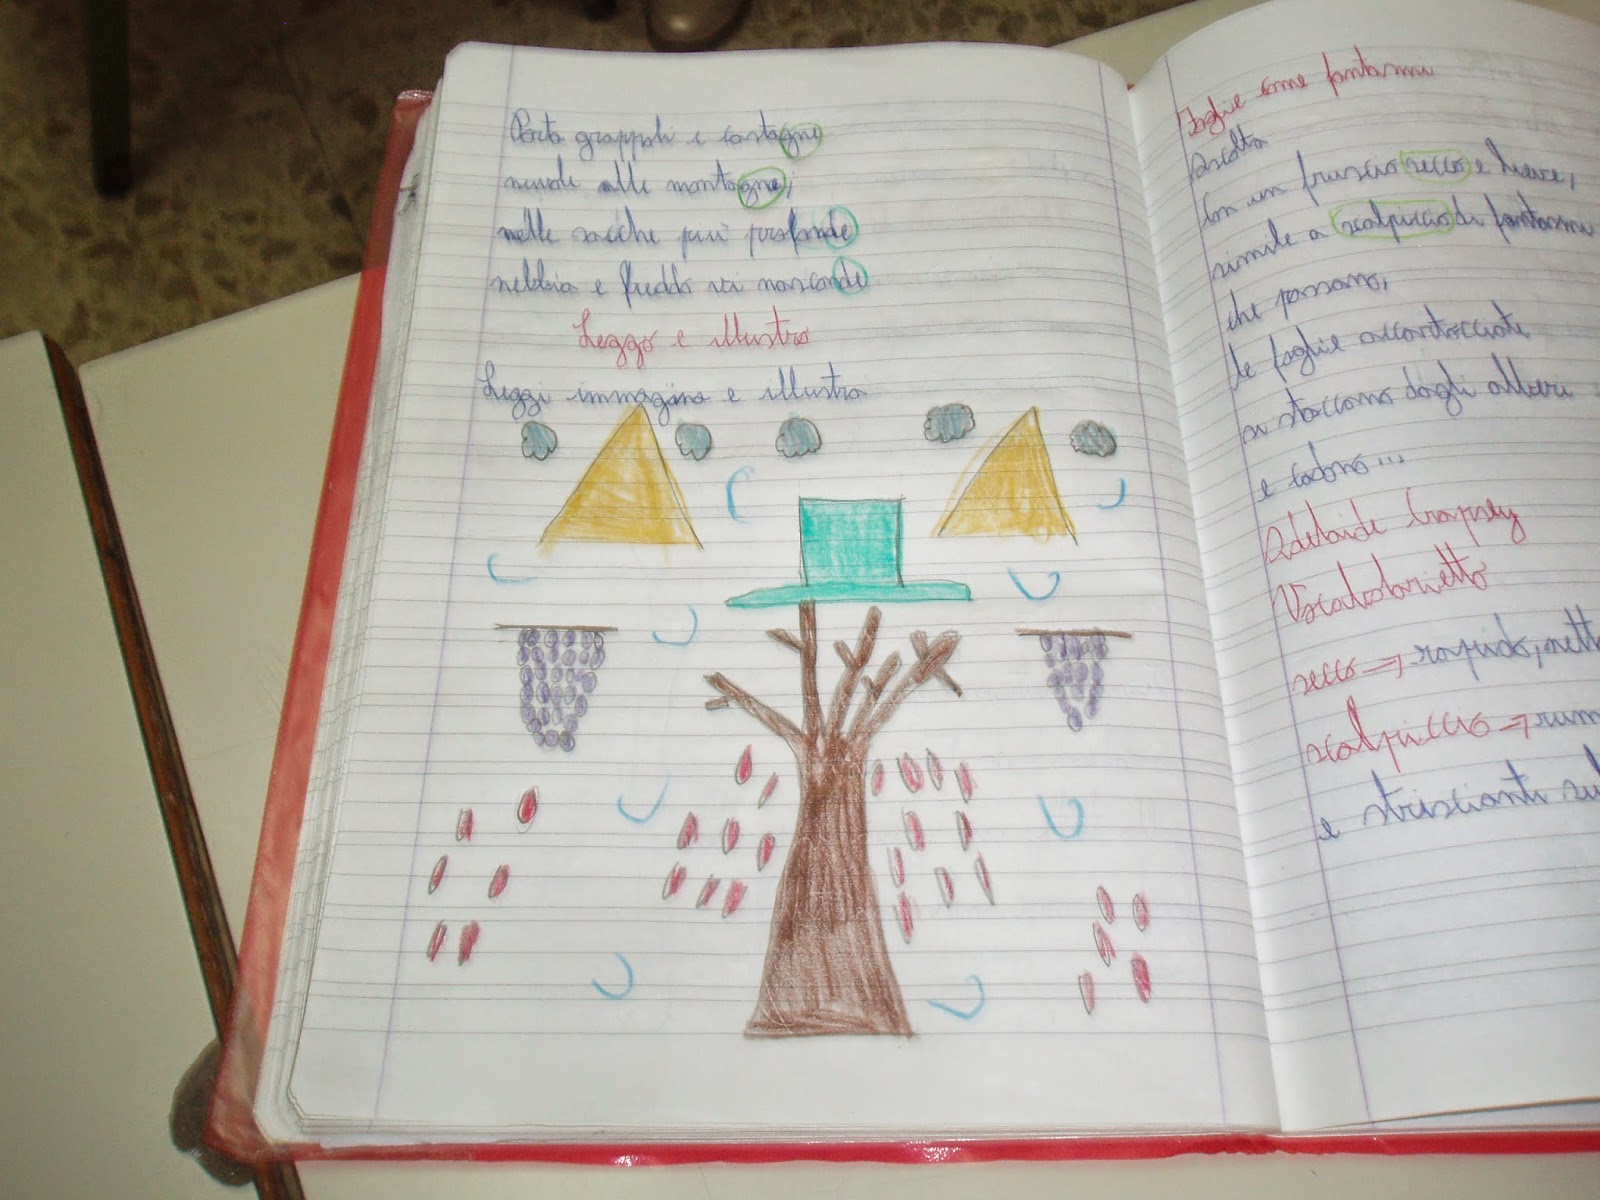 Porta grappoli e castagne
nuvole alle montagne;
nelle sacche più profonde
nebbia e freddo vi nasconde
Leggo e illustro
Leggi immagina e illustra
Foglie come fantasmi
Ascolta
Con un fruscio secco e lieve,
simile a scalpiccio di fantasmi
che passano,
le foglie accartocciate
si staccano dagli alberi
e cadono...
Adelaide Crapsey
Vocabolarietto
secco → rapido, nett
scalpiccio → rum
e striscianti sul